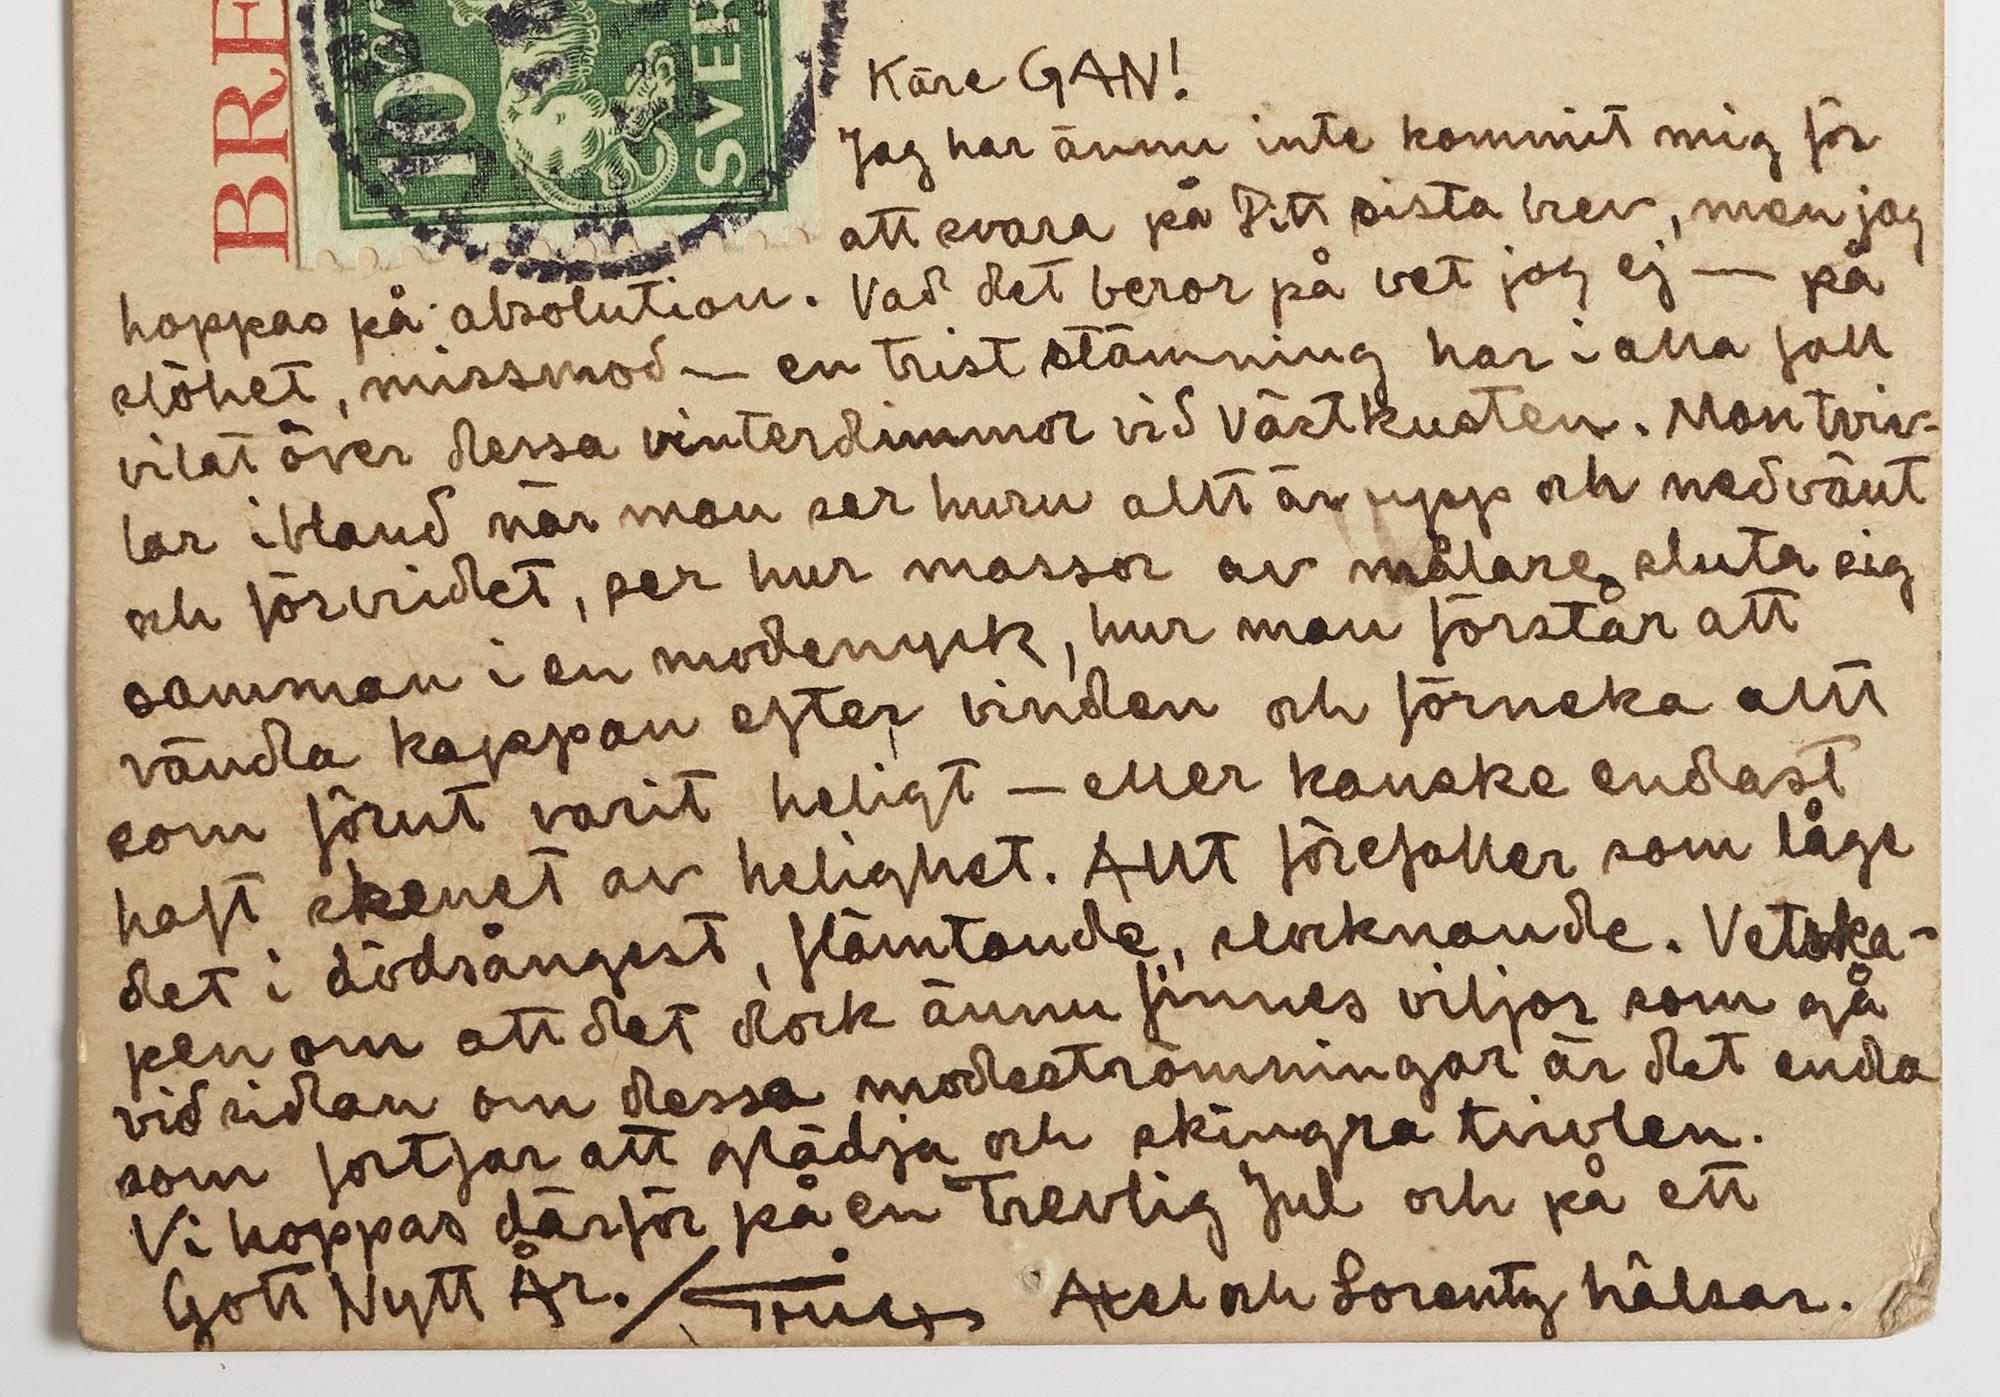 BRE
10
SVER
Käre GAN!
Jag har ännu inte kommit mig för
att svara på Ditt sista brev, men jag
hoppas på absolution. Vad det beror på vet jag ej — på
slöhet, missmod — en trist stämning har i alla fall
vilat över dessa vinterdimmor vid Västkusten. Man tviv-
lar ibland när man ser huru allt är upp och nedvänt
och förvridet, ser hur massor av målare sluta sig
samman i en modenyck, hur man förstår att
vända kappan efter vinden och förneka allt
som förut varit heligt — eller kanske endast
haft skenet av helighet. Allt förefaller som låge
det i dödsångest, flämtande, slocknande. Vetska-
pen om att det dock ännu finnes viljor som gå
vid sidan om dessa modeströmningar är det enda
som fortfar att glädja och skingra tvivlen.
Vi hoppas därför på en Trevlig Jul och på ett
Gott Nytt År. Axel och Lorentz hälsar.